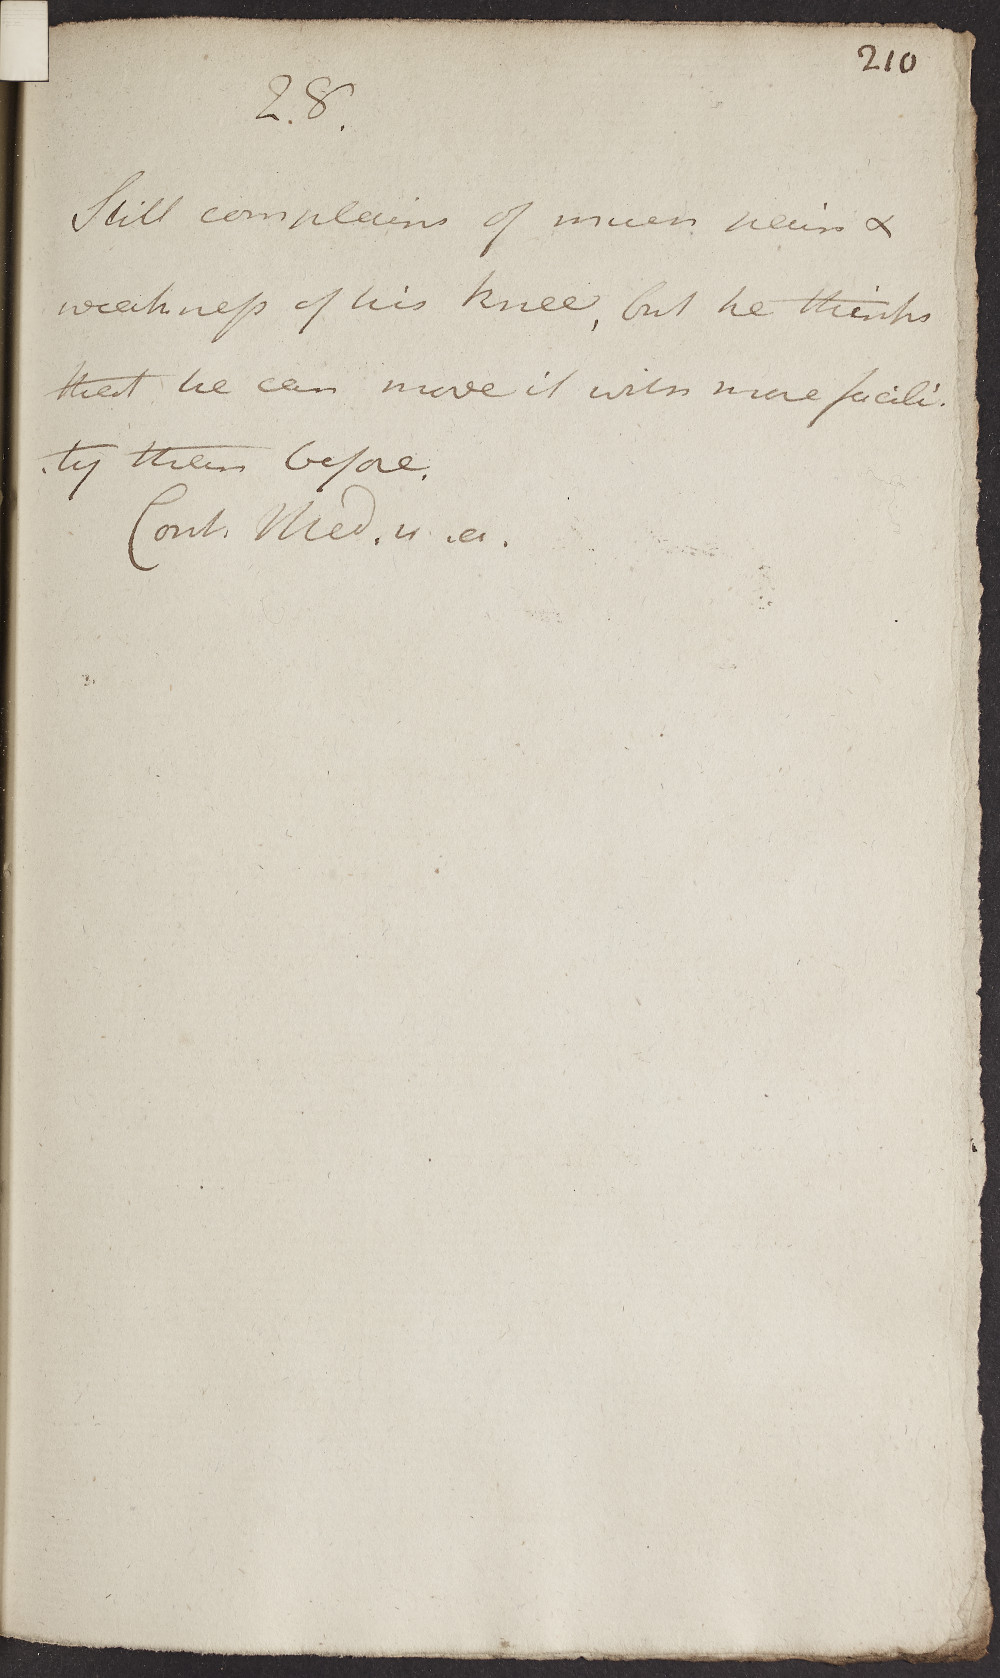 210
28.
Still complains of much pain &
weakness of his knee, but he thinks
that he can move it with more facili-
-ty than before.
Cont. Med. u.a.